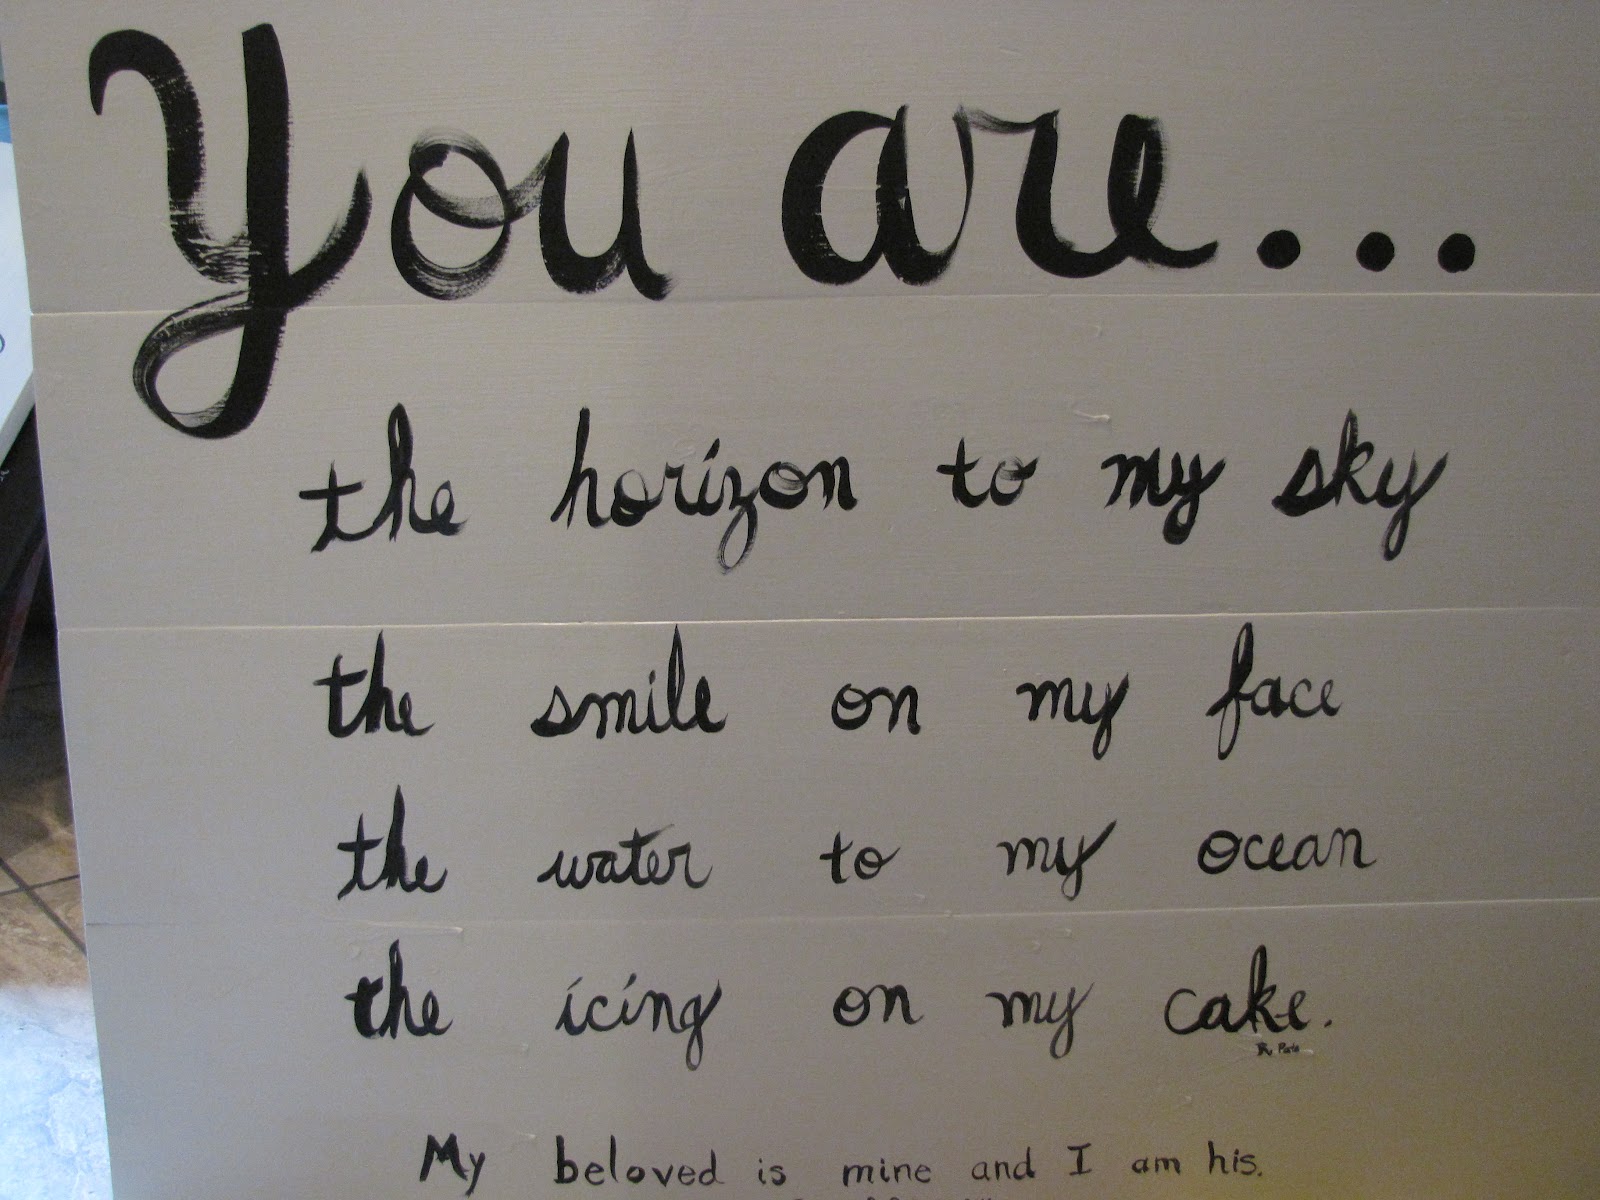 You are...
the horizon to my sky
the smile on my face
the water to my ocean
the icing on my cake.
My beloved is mine and I am his.